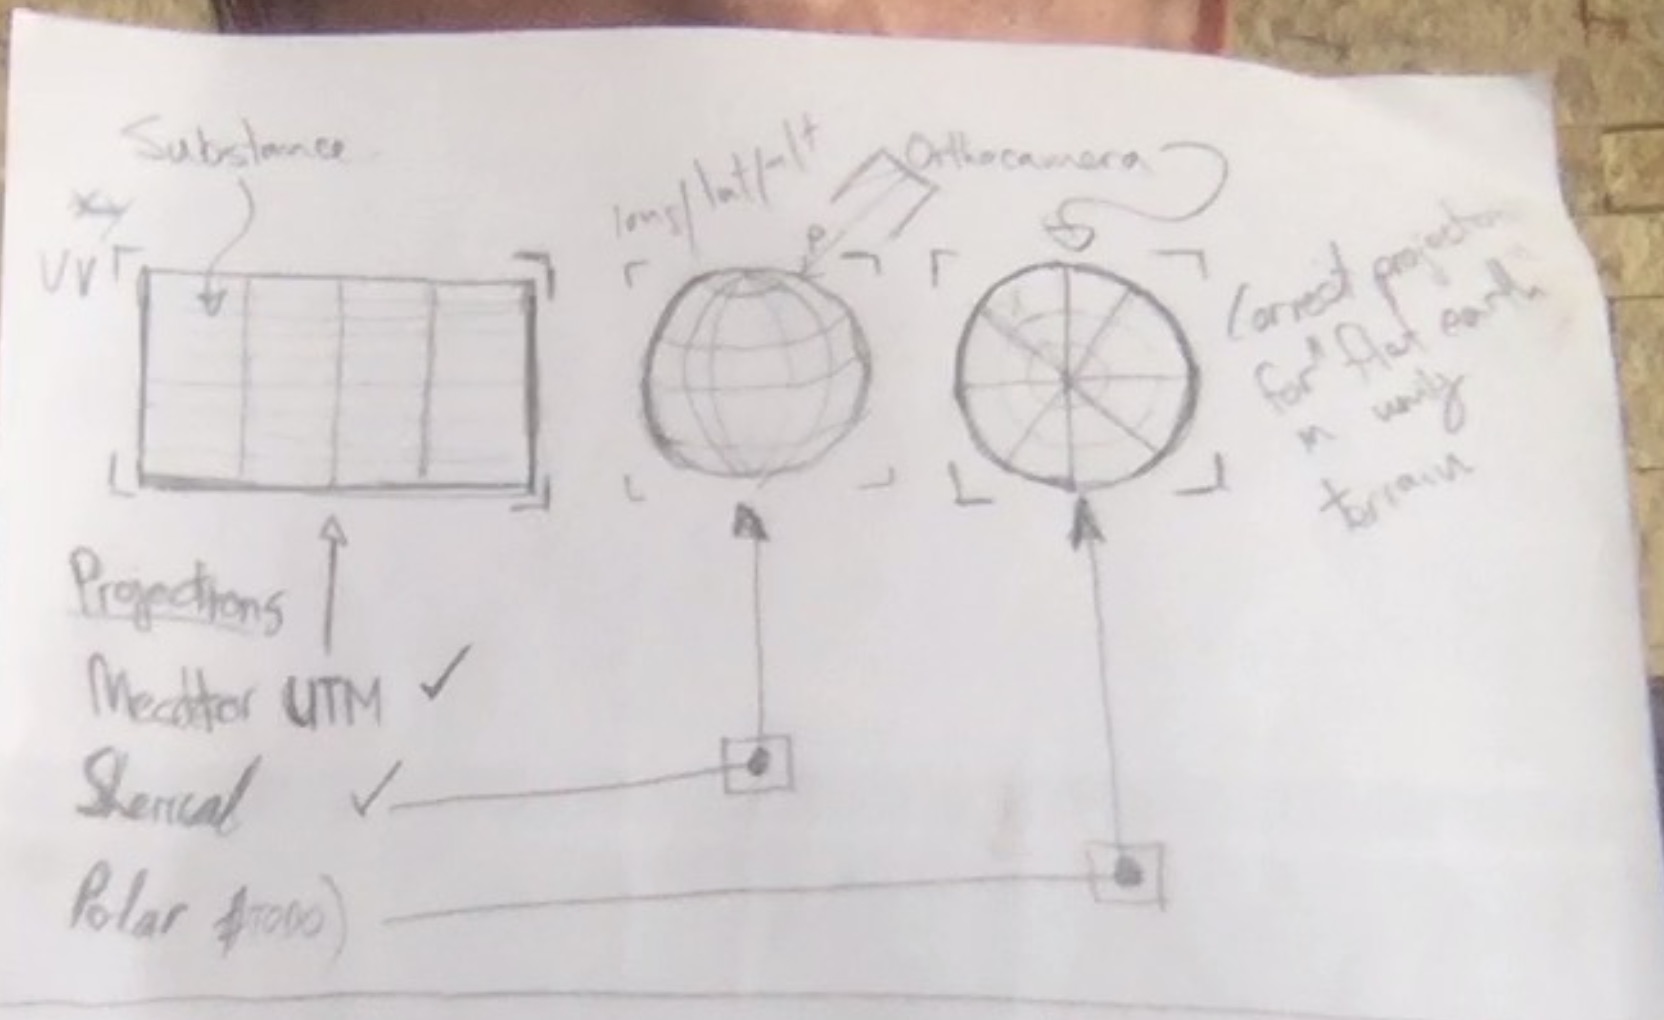 Substance
long/lat/alt
Orthocamera
xy
UV
Correct projection
for "flat earth"
in unity
terrain
Projections
UTM ✓
✓
Polar (TODO)